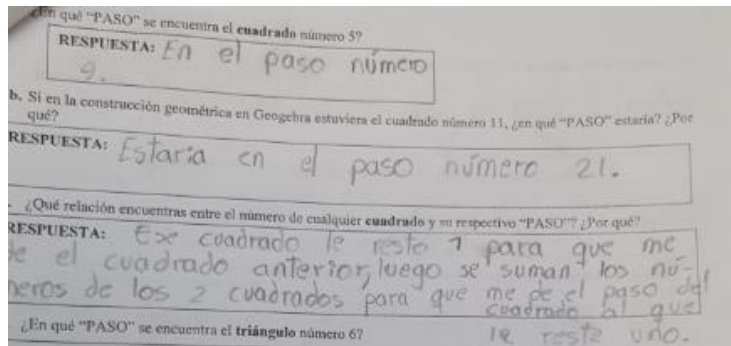 ¿En qué "PASO" se encuentra el cuadrado número 5?
RESPUESTA: En el paso número
9.
b. Si en la construcción geométrica en Geogebra estuviera el cuadrado número 11, ¿en qué "PASO" estaría? ¿Por
qué?
RESPUESTA: Estaria en el paso número 21.
¿Qué relación encuentras entre el número de cualquier cuadrado y su respectivo "PASO"? ¿Por qué?
RESPUESTA: Ese cuadrado le resto 1 para que me
de el cuadrado anterior, luego se suman los nú-
meros de los 2 cuadrados para que me de el paso del
cuadrado al que
le reste uno.
¿En qué "PASO" se encuentra el triángulo número 6?